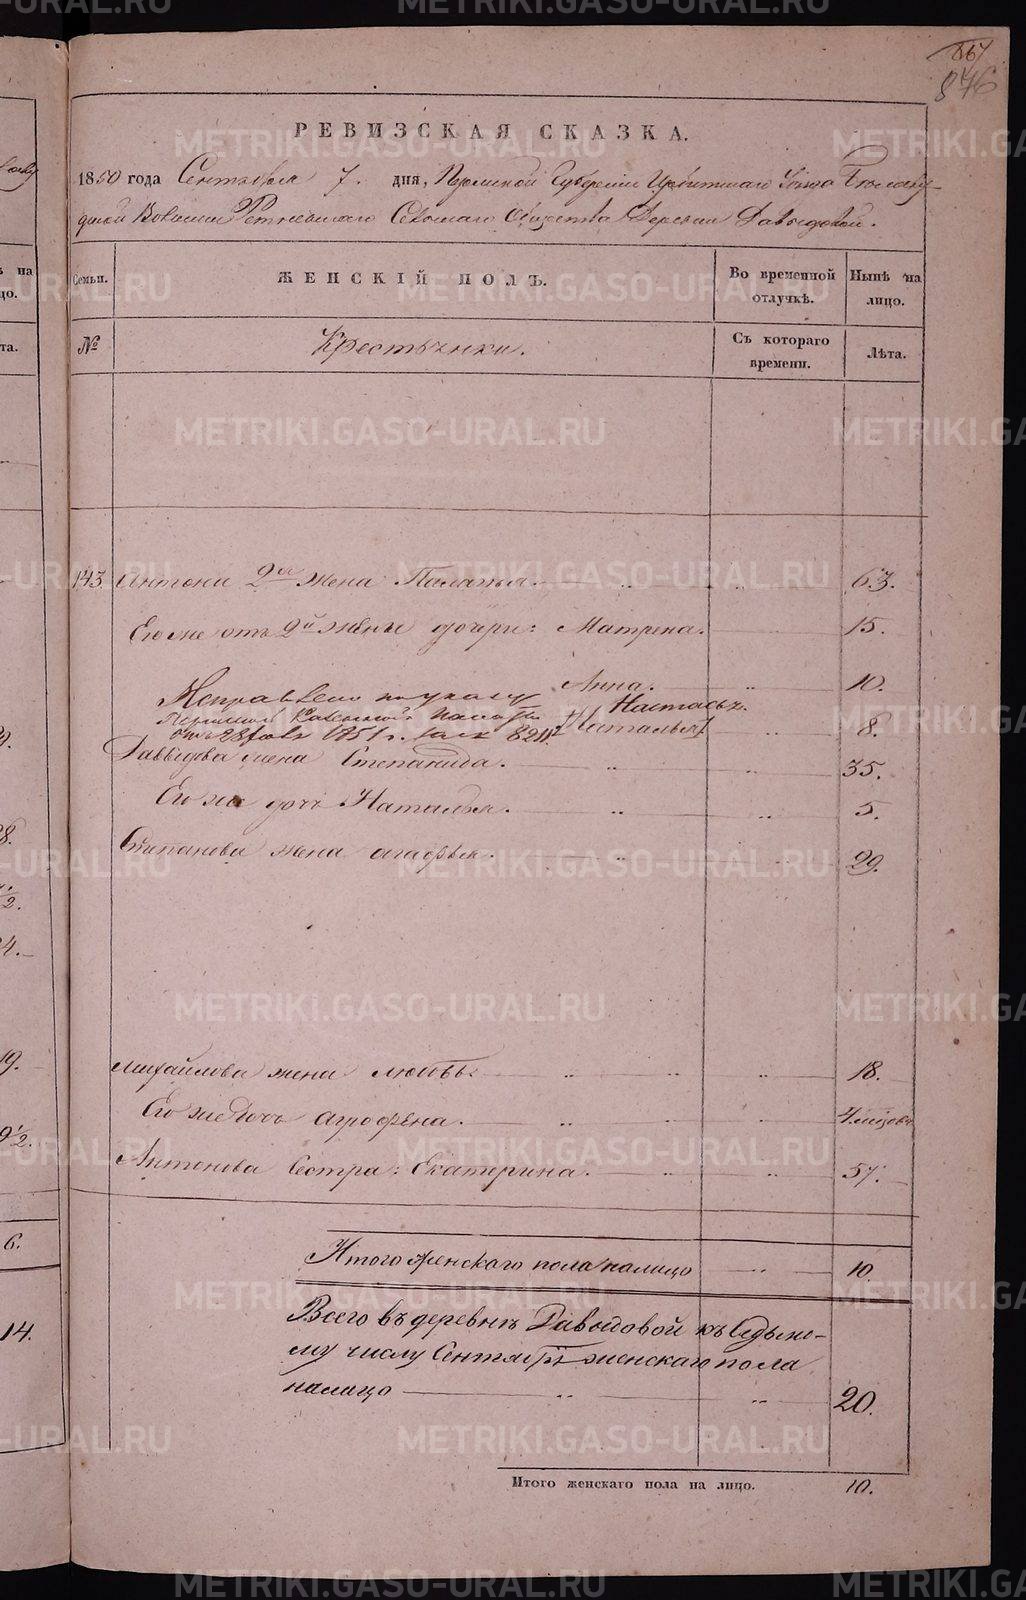 867
876
РЕВИЗСКАЯ СКАЗКА.
1850 года Сентября 7. дня, Пермской Губернии Ирбитскаго Уезда
Волости Сельскаго Общества Деревни Давыдовой.
Семьи. ЖЕНСКІЙ ПОЛЪ. Во временной отлучкѣ. Нынѣ на лицо.
№ Крестьянки. Съ котораго времени. Лѣта.
143. Антона 2ая жена Палагья. 63.
Его же отъ 2й жены дочери: Матрена. 15.
Анна. 10.
Исправлено по указу Настасья.
Пермской Казенной Палаты Наталья 8.
отъ 28 1851 г. за № 8211
Давыдова жена Степанида. 35.
Его же дочь Наталья. 5.
Степанова жена Агафья. 29.
Михайлова жена Любовь. 18.
Его же дочь Агрофена. 4 месяцовъ
Антонова Сестра: Екатерина. 57.
Итого женскаго пола налицо 10
Всего въ деревнѣ Давыдовой къ Седьмо-
му числу Сентября женскаго пола
налицо 20.
Итого женскаго пола на лицо. 10.
METRIKI.GASO-URAL.RU